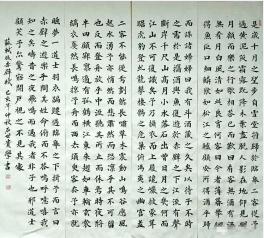 是歲十月之望步自雪堂將歸於臨皋二客從予
過黃泥之坂霜露既降木葉盡脫人影在地仰見明
月顧而樂之行歌相答已而嘆曰有客無酒有酒無
肴月白風清如此良夜何客曰今者薄暮舉網
得魚巨口細鱗狀如松江之鱸顧安所得酒乎歸
而謀諸婦婦曰我有斗酒藏之久矣以待子不時
之需於是攜酒與魚復遊於赤壁之下江流有聲
斷岸千尺山高月小水落石出曾日月之幾何而
江山不可復識矣予乃攝衣而上履巉巖披蒙茸
踞虎豹登虬龍攀栖鶻之危巢俯馮夷之幽宮蓋
二客不能從焉劃然長嘯草木震動山鳴谷應風
起水涌予亦悄然而悲肅然而恐凜乎其不可留
也反而登舟放乎中流聽其所止而休焉時夜將半
四顧寂寥適有孤鶴橫江東來翅如車輪玄裳
縞衣戛然長鳴掠予舟而西也須臾客去予亦就
睡夢一道士羽衣蹁躚過臨皋之下揖予而言曰
赤壁之遊樂乎問其姓名俯而不答嗚呼噫嘻我
知之矣疇昔之夜飛鳴而過我者非子也耶道士
顧笑予亦驚寤開戶視之不見其處
蘇軾後赤壁賦